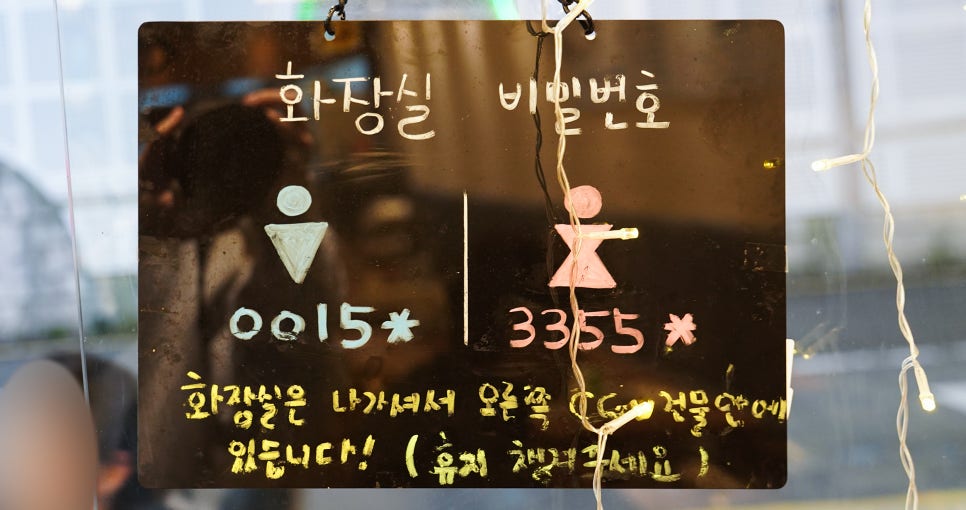 화장실 비밀번호
0015* 3355*
화장실은 나가셔서 오른쪽 건물안에
있습니다! (휴지 챙겨주세요)